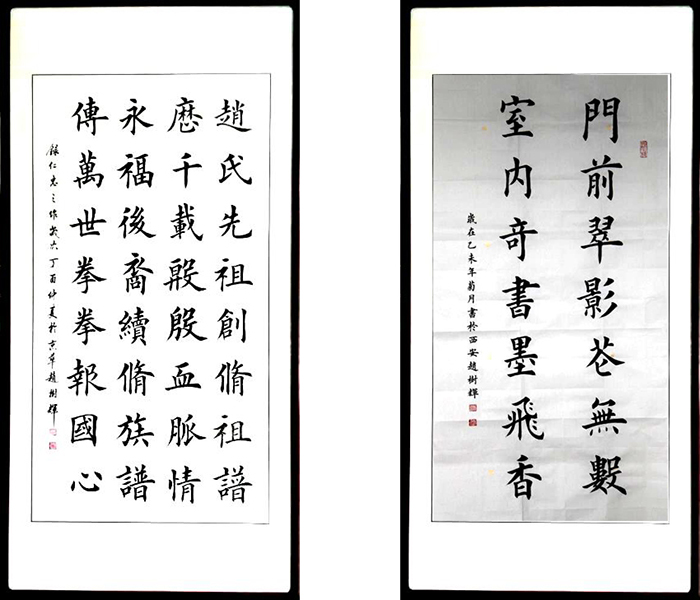 趙氏先祖創脩祖譜
厯千載殷殷血脈情
永福後裔續脩族譜
傳萬世拳拳報國心
録仁忠之作歲次丁酉仲夏於京華趙樹輝
門前翠影花無數
室内奇書墨飛香
歲在乙未年菊月書於西安趙樹輝